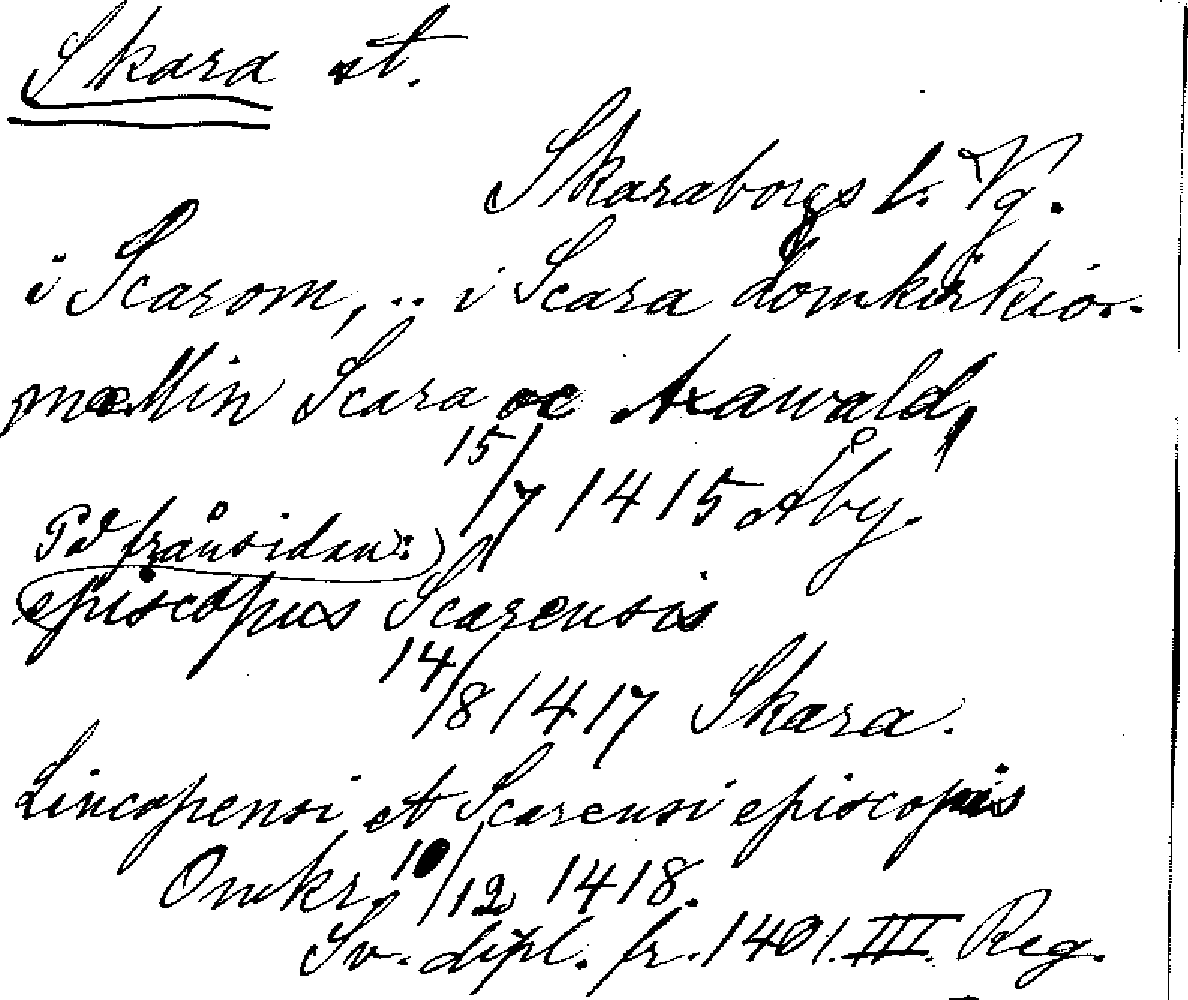 Skara st.
Skaraborgs l. Vg.
i Scarom, .. i Scara domkirkio.
mællin Scara oc Axawald,
15/7 1415 Åby.
På frånsidan:
episcopus Scarensis
14/8 1417 Skara.
Lincopensi et Scarensi episcopis
Omkr. 10/12 1418.
Sv. dipl. fr. 1401. III. Reg.